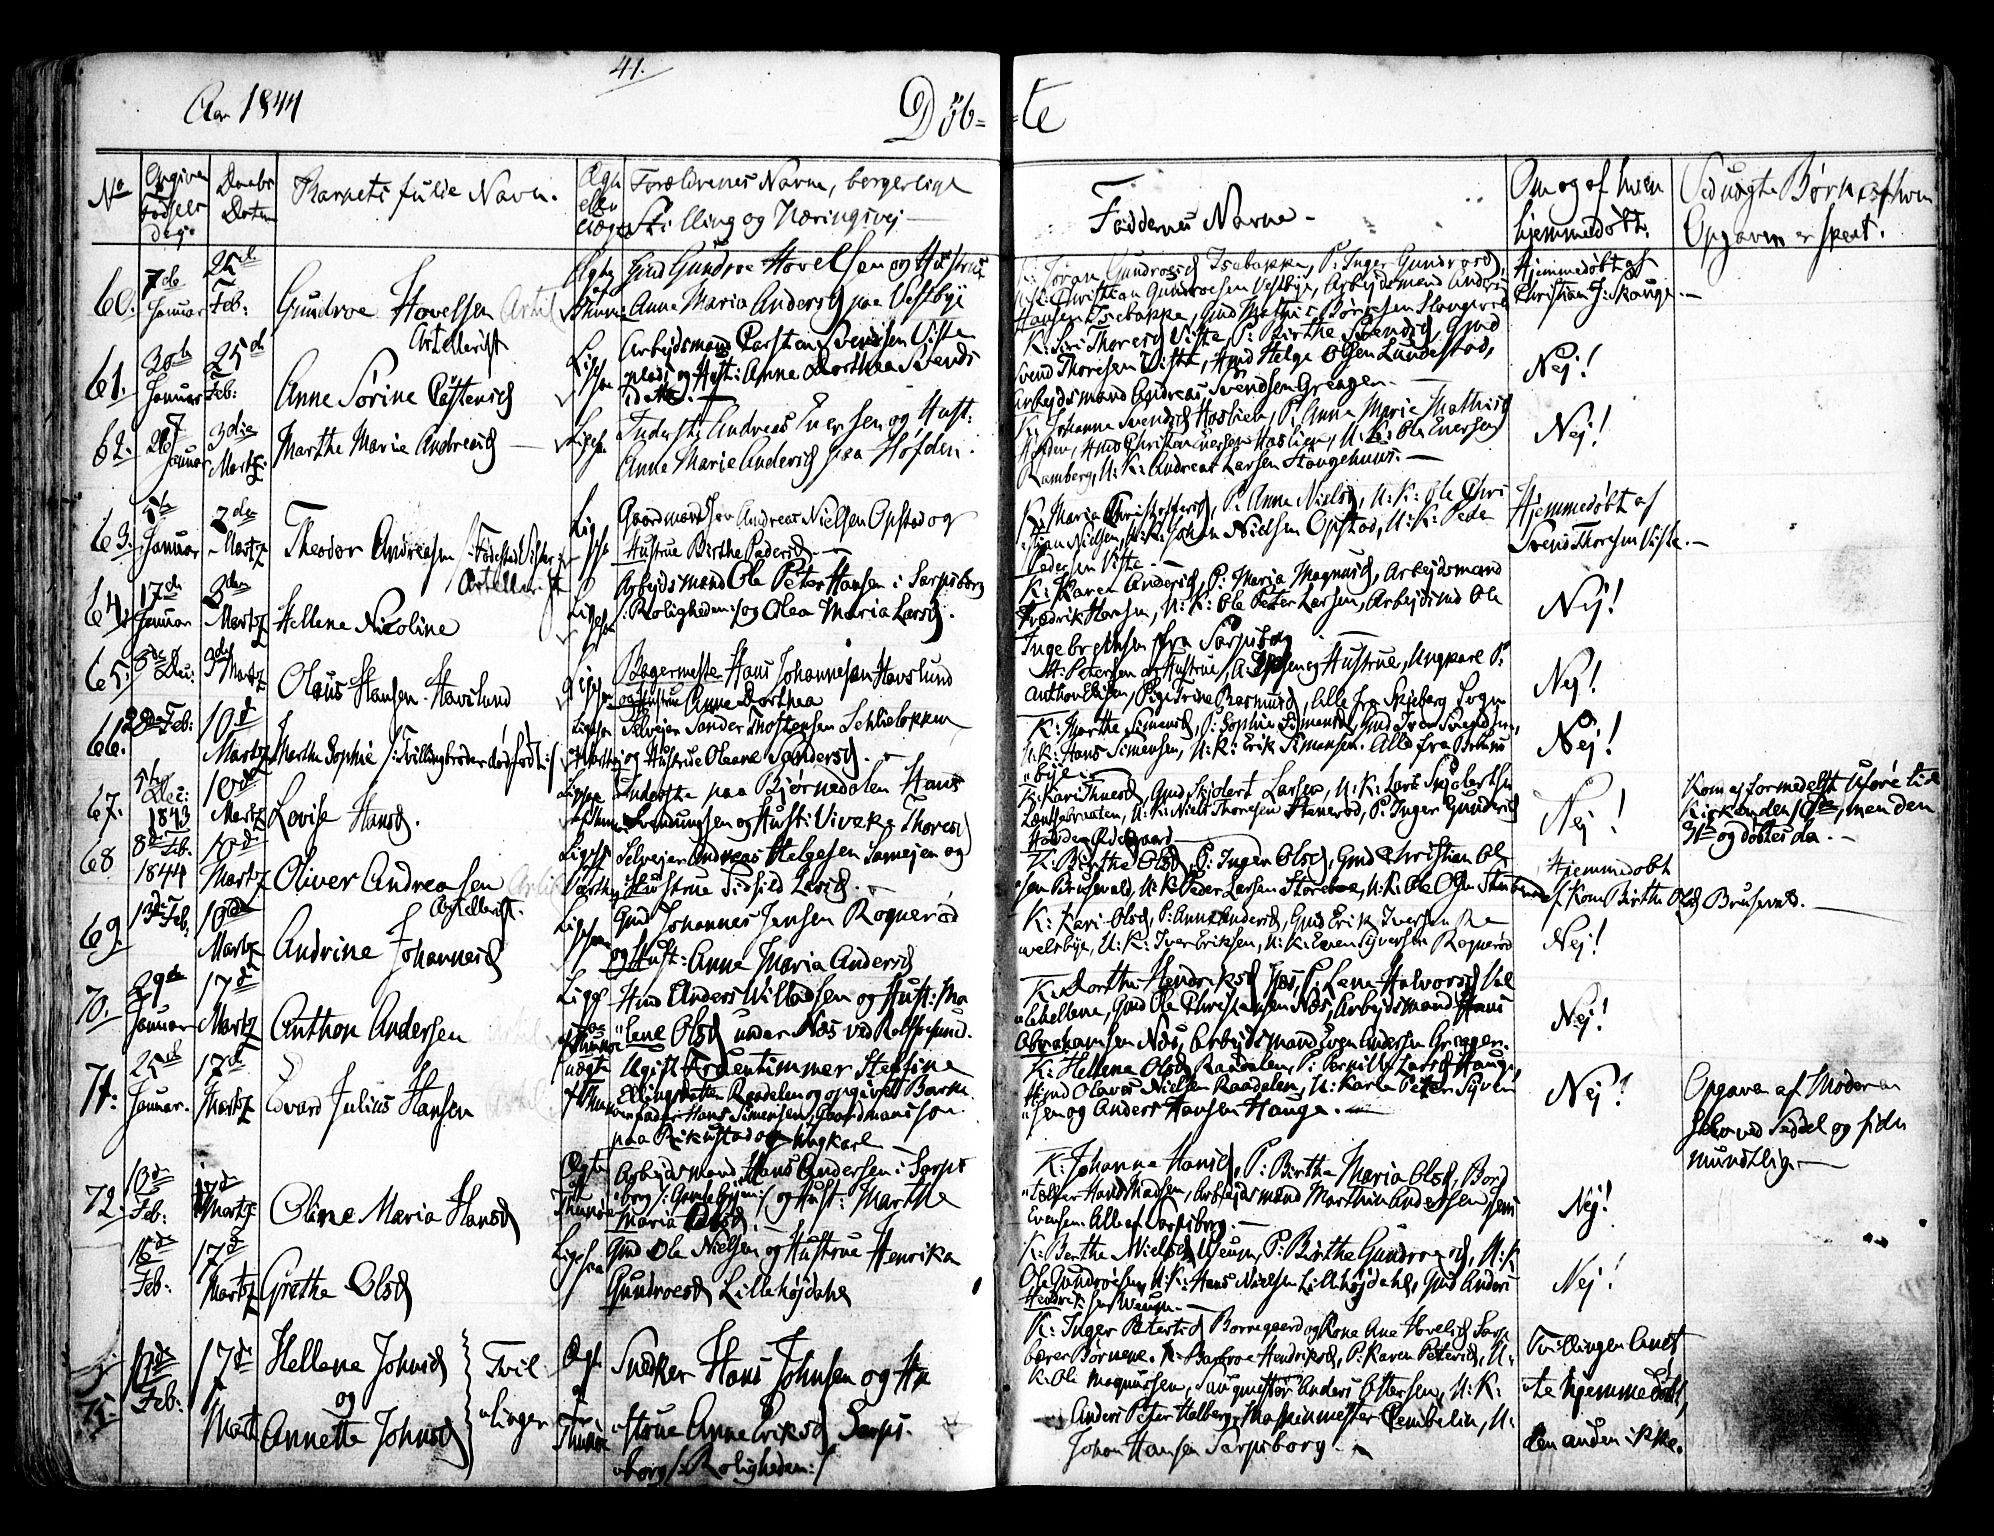 41.
Aar 1844
Döb-
-te
No
Opgiven
Födsels
Dag.
Daabs
Datum
Barnets fulde Navn.
Ægte
eller
Uægte
Forældrenes Navne, borgerlige
Stilling og Næringsvej
Faddernes Navne
Om og af hvem
hjemmedöbt.
Ved uægte Børn af hvem
Opgaven er skeet.
60.
7de
Januar
25de
Feb:
Gundroe Hovelsen
Gmd Gundroe Hovelsen og Hustrue
Anne Maria Andersd paa Vestbye
K: Jøran Gundroesd Isebakke, P: Inger Gundrosd,
U: K: Christian Gundroesen Vestbye, Arbejdsmand Anders
Hansen Isebakke, Gmd Mathis Börresen
Hjemmedöbt af
Christian J: Skouge.
61.
30te
Januar
25de
Feb:
Artellerist
Anne Sörine Carstensd
Ligesaa
Arbejdsmand Carsten Svendsen Viste
plads og Hust: Anne Dorthea Svends
datter.
K: Siri Thoresd Viste, P: Birthe Svendsd, Gmd
Svend Thoresen Viste, Hmd Helge Olsen Lundestad,
Arbejdsmand Andreas Svendsen Greager.
Nej!
62.
Januar
3die
Martz.
Marthe Marie Andreasd
Ligesaa
Inderste Andreas Iversen og Hust:
Anne Marie Andersd paa Höfden.
K: Johanne Svendsd Haslien, P: Anne Marie Mathisd
Höfden, Hmd Christian Iversen Haslien, U: K: Ole Eversen
Ramberg, U: K: Andreas Larsen Haugehuus.
Nej!
63.
Januar
2den
Martz
Theodor Andreasen
Ligesaa
Gaardmandsen Andreas Nielsen Opstad og
Hustrue Birthe Pedersd.
K: Maria Christophersd, P: Anne Nielsd, U: K: Ole Chri
stian Nielsen, U: K: Johan Nielsen Opstad, U: K: Peder
Pedersen Viste.
Hjemmedöbt af
Svend Thoresen Viste.
Artellerist
64.
17de
Januar
3den
Martz
Hellene Nicoline
Ligesaa
Arbejdsmand Ole Peter Hansen i Sarpsborg
/:Roligheden:/ og Olea Maria Larsd.
K: Karen Andersd, P: Maria Magnusd, Arbejdsmand
Fredrik Hansen, U: K: Ole Peter Larsen, Arbejdsmd Ole
Ingebrethsen fra Sarpsborg
Nej!
65.
Dec:
3de Martz
Olaus Hansen Havslund
Ligesaa
Bagermester Hans Johannesen Havslund
og Hustrue Anne Dorthea
H: Petersen og Hustrue, A: og Hustrue, Ungkarl P:
Anthon Eliesen, Pige Trine Rasmusd, alle fra Skjeberg Sogn
Nej!
66.
Feb:
10de
Martz
Marthe Sophie /:Tvillingbroder dödfödt:/
Ligesaa
Selvejer Sander Thostensen Schlieboppen
og Hustrue Oleane Sandersd.
K: Marthe Simensd, P: Sophie Simensd, Gmd Iver Svendsen,
U: K: Hans Simensen, U: K: Erik Simensen. Alle fra Bo
bye.
Nej!
67.
5te
Dec:
1843
10de
Martz
Lovise Hansd.
Ligesaa
Inderste paa Bjørnedalen Hans
Svendungsen og Hust: Viveke Thoresd
K: Kari Thoresd, Gmd Skjolert Larsen, U: K: Lars Skjolertsen
U: K: Niels Thoresen Stenerød, P: Inger Gundersd
Nej!
Kom ej formedelst Uföre til
Kirken den, men den
og döbtes da.
68
8de Feb.
1844
10de
Martz
Oliver Andreasen
Ligesaa
Selvejer Andreas Helgesen Samejen og
Hustrue Sidsild Larsd.
K: Birthe Olsd, P: Inger Olsd, Gmd Christian Ol
sen Brusevold, U: K: Peder Larsen, U: K: Ole Olsen
Hjemmedöbt
af Kone Birthe Olsd Brusevold.
69.
13de Feb:
10de
Martz
Artellerist.
Andrine Johannesd
Ligesaa
Gmd Johannes Jensen Rognerød
og Hust: Anne Maria Andersd
K: Kari Olsd, P: Anne Andersd, Gmd Erik Iversen Ra
velsbye, U: K: Iver Eriksen, U: K: Even Syversen Rognerød
Nej!
70.
29de
Januar
17de
Martz
Anthon Andersen
Ligesaa
Hmd Anders Willadsen og Hust: Ma
lene Olsd under Næs ved Rolfsøesund.
K: Dorthe Hendriksd Næs, P: Lene Halvorsd Val
lehellene, Gmd Ole Christensen Næs, Arbejdsmand Hans
Abrahamsen Næs, Arbejdsmand Even Andersen Greager.
Nej!
71.
25de
Januar.
17de
Martz
Edvard Julius Hansen
uægte
Ugift Fruentimmer Steffine
Ellingsdatter Raadalen og opgivet Barne
fader Hans Simensen, Gaardmandsøn
paa Rikustad og Ungkarl
K: Hellene Olsd Raadalen, P: Pernille Larsd Hauge,
Hmd Olaves Nielsen Raadalen, U: Karle Peter Syver
sen og Anders Hansen Hauge.
Nej!
Opgaven af Moderen
skeed ved Seddel og siden
mundtlig.
72.
10de
Feb:
17de
Martz
Oline Maria Hansd
Ægte
Arbejdsmand Hans Andersen i Sarps
borg og Hust: Marthe
Maria Olsd.
K: Johanne Hansd, P: Birthe Maria Olsd,
Hans Madsen, Arbejdsmand Marthin Andersen Jens
Evensen. Alle af Sarpsborg.
Nej!
16de
Feb:
17de
Martz
Grethe Olsd
Ligesaa
Gmd Ole Nielsen og Hustrue Henrika
Gundroesd Lillehøjdahl
K: Berthe Nielsd Weum, P: Birthe Gundroesd, U: K
Ole Gundroesen, U: K: Hans Nielsen Lillehøjdahl, Gmd Anders
Hendriksen Weum.
Nej!
75.
Feb:
17de
Martz
Hellene Johnsd
og
Annette Johnsd
Tvil
linger
Snedker Hans Johnsen og Hu
strue Anne Eriksd Sarps
borg /:Roligheden:/
K: Inger Petersd Borregaard og Kone Ane Hovelsd Sarp
bærer Børnene. K: Barbroe Hendriksd, P: Karen Petersd, U:
K: Ole Magnussen, Saugmester Anders Ottersen, U: K:
Anders Peter Halberg, Maskinmester Pembelin, U:
Johan Hansen Sarpsborg.
Tvillingen Anet
te hjemmedöbt,
den anden ikke.